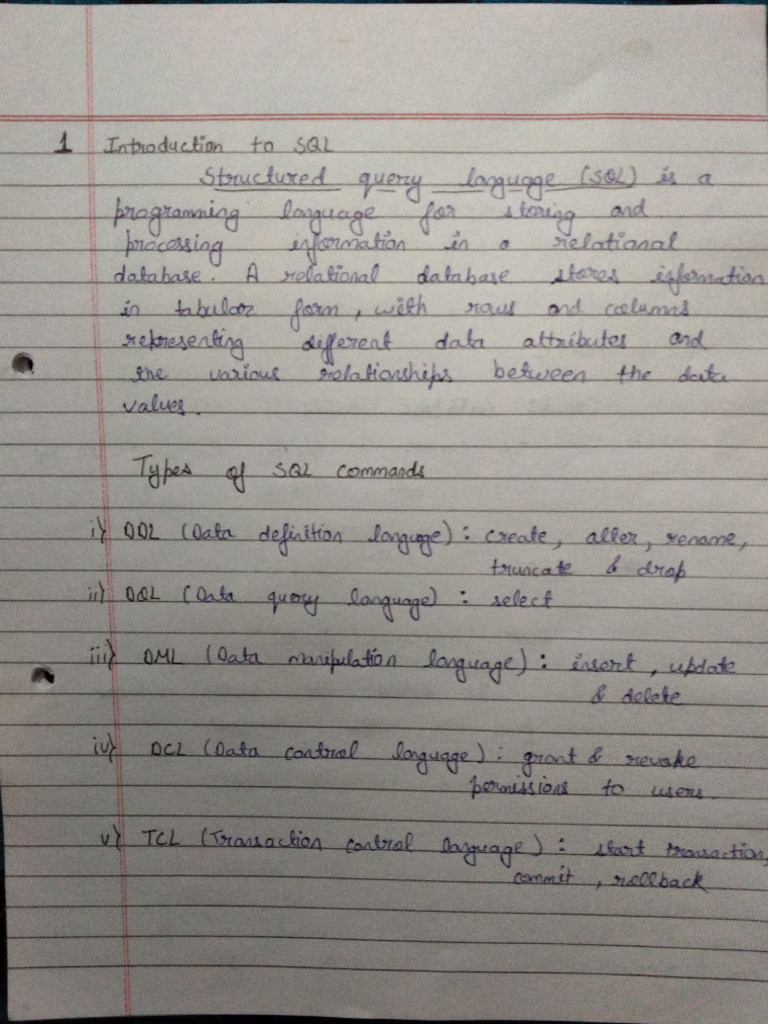 1 Introduction to SQL
Structured query language (SQL) is a
programming language for storing and
processing information in a relational
database. A relational database stores information
in tabular form, with rows and columns
representing different data attributes and
the various relationships between the data
values.
Types of SQL commands
i) DDL (Data definition language) : create, alter, rename,
truncate & drop
ii) DQL (Data query language) : select
iii) DML (Data manipulation language) : insert, update
& delete
iv) DCL (Data control language) : grant & revoke
permissions to users.
v) TCL (Transaction control language) : start transaction,
commit, rollback